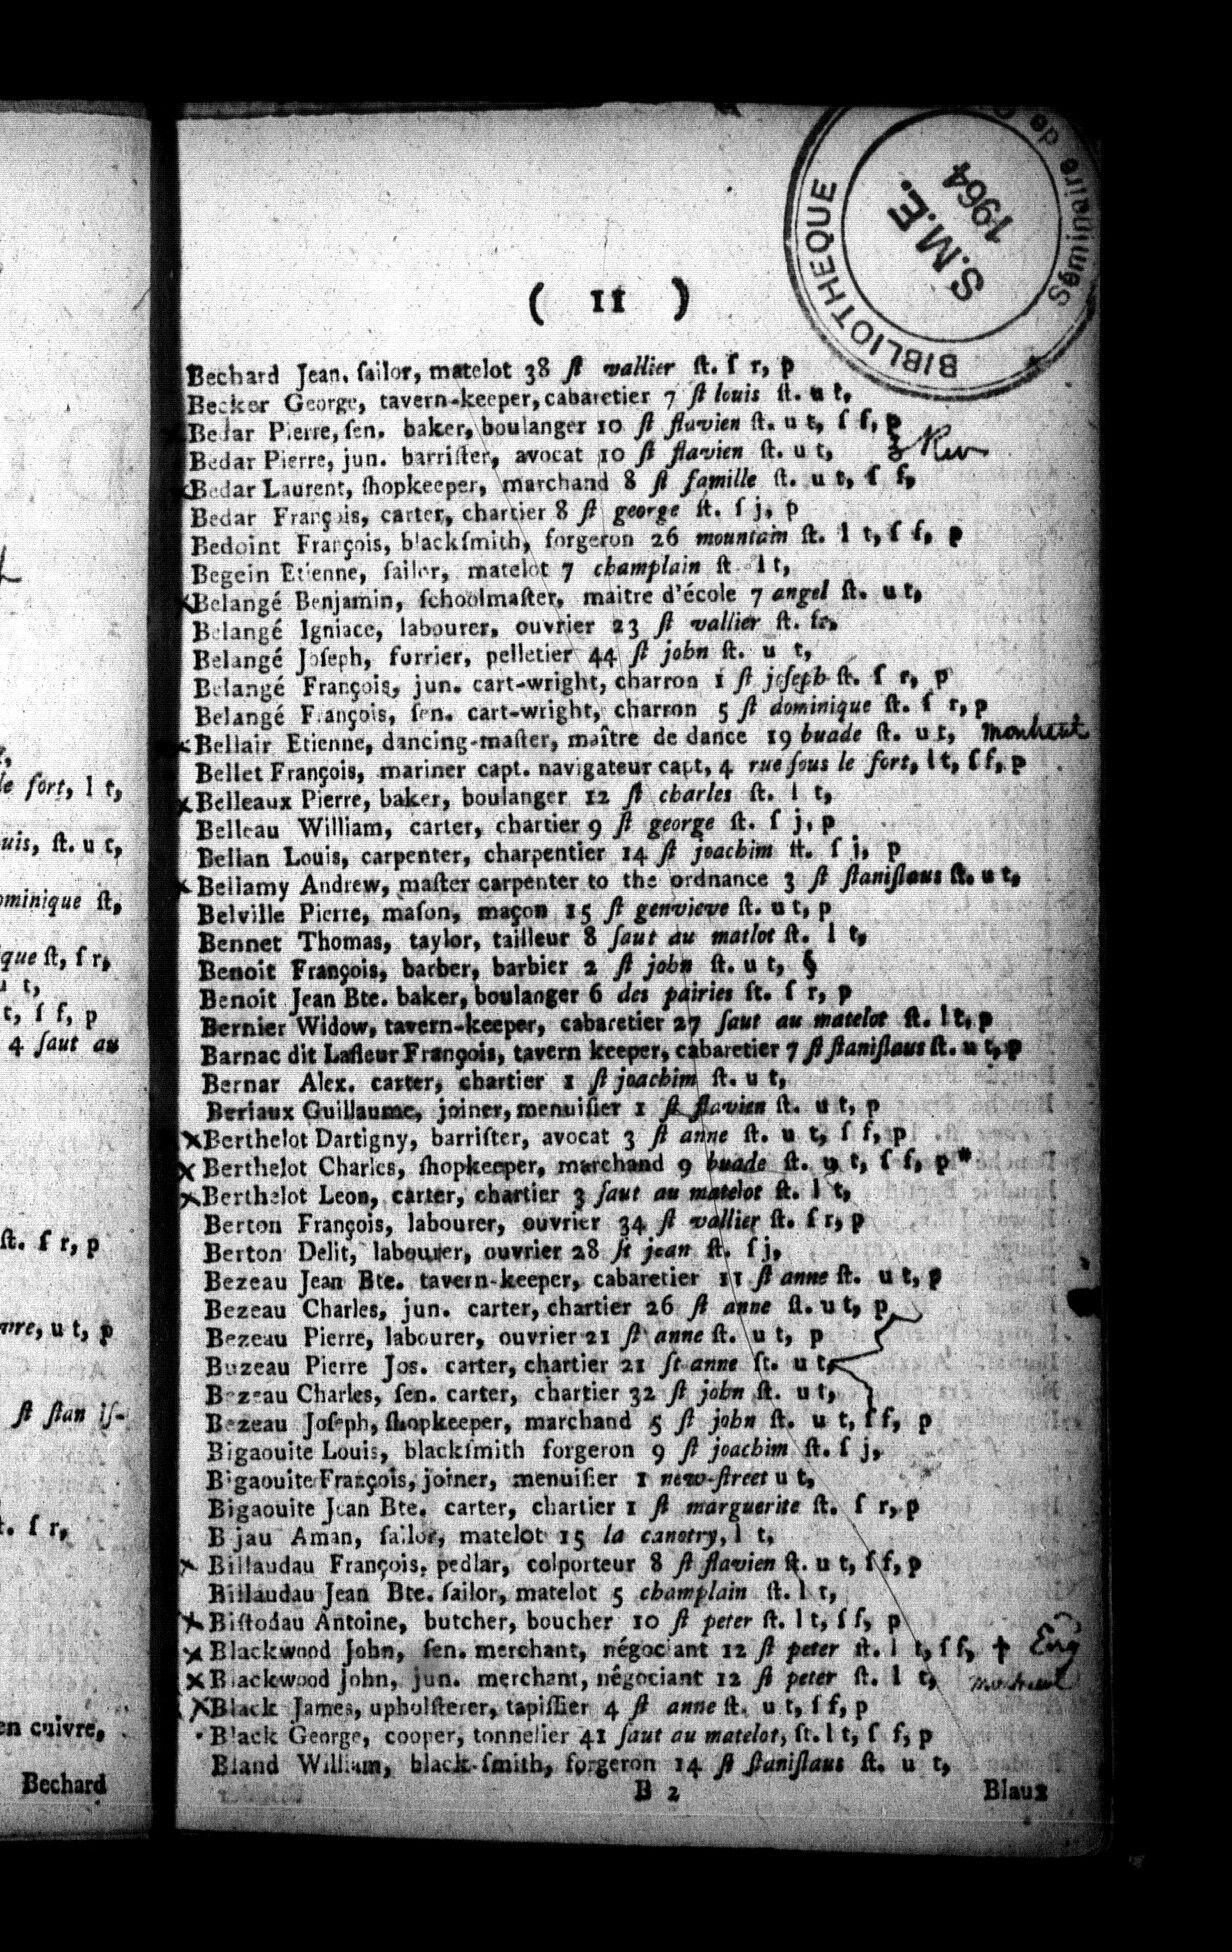 BIBLIOTHEQUE
Séminaire de
S.M.E.
1964
( 11 )
Bechard Jean. ſailor, matelot 38 ſt vallier ſt. ſ r, p
Becker George, tavern-keeper, cabaretier 7 ſt louis ſt. u t,
Bedar Pierre, ſen. baker, boulanger 10 ſt flavien ſt. u t, ſ f, p
Bedar Pierre, jun. barriſter, avocat 10 ſt flavien ſt. u t,
Bedar Laurent, ſhopkeeper, marchand 8 ſt famille ſt. u t, ſ f,
Bedar François, carter, chartier 8 ſt george ſt. ſ j, p
Bedoint François, blackſmith, forgeron 26 mountain ſt. l t, ſ f, p
Begein Etienne, ſailor, matelot 7 champlain ſt l t,
Belangé Benjamin, ſchoolmaſter, maitre d'école 7 angel ſt. u t,
Belangé Igniace, labourer, ouvrier 23 ſt vallier ſt. ſr,
Belangé Joſeph, furrier, pelletier 44 ſt john ſt. u t,
Belangé François, jun. cart-wright, charron 1 ſt joſeph ſt. ſ r, p
Belangé François, ſen. cart-wright, charron 5 ſt dominique ſt. ſ r, p
Bellair Etienne, dancing-maſter, maître de dance 19 buade ſt. u t, montreal
Bellet François, mariner capt. navigateur capt, 4 rue ſous le fort, l t, ſ f, p
Belleaux Pierre, baker, boulanger 12 ſt charles ſt. l t,
Belleau William, carter, chartier 9 ſt george ſt. ſ j, p
Bellan Louis, carpenter, charpentier 14 ſt joachim ſt. ſ j, p
Bellamy Andrew, maſter carpenter to the ordnance 3 ſt ſtaniſlaus ſt. u t,
Belville Pierre, maſon, maçon 15 ſt genvieve ſt. u t, p
Bennet Thomas, taylor, tailleur 8 ſaut au matlot ſt. l t,
Benoit François, barber, barbier 2 ſt john ſt. u t, §
Benoit Jean Bte. baker, boulanger 6 des pairies ſt. ſ r, p
Bernier Widow, tavern-keeper, cabaretier 27 ſaut au matelot ſt. l t, p
Barnac dit Lafleur François, tavern keeper, cabaretier 7 ſt ſtaniſlaus ſt. u t, p
Bernar Alex. carter, chartier 1 ſt joachim ſt. u t,
Beriaux Guillaume, joiner, menuiſier 1 ſt flavien ſt. u t, p
Berthelot Dartigny, barriſter, avocat 3 ſt anne ſt. u t, ſ f, p
Berthelot Charles, ſhopkeeper, marchand 9 buade ſt. u t, ſ f, p*
Berthelot Leon, carter, chartier 3 ſaut au matelot ſt. l t,
Berton François, labourer, ouvrier 34 ſt vallier ſt. ſ r, p
Berton Delit, labourer, ouvrier 28 ſt jean ſt. ſ j,
Bezeau Jean Bte. tavern-keeper, cabaretier 11 ſt anne ſt. u t, p
Bezeau Charles, jun. carter, chartier 26 ſt anne ſt. u t, p
Bezeau Pierre, labourer, ouvrier 21 ſt anne ſt. u t, p
Buzeau Pierre Jos. carter, chartier 21 ſt anne ſt. u t,
Bezeau Charles, ſen. carter, chartier 32 ſt john ſt. u t,
Bezeau Joſeph, ſhopkeeper, marchand 5 ſt john ſt. u t, ſ f, p
Bigaouite Louis, blackſmith forgeron 9 ſt joachim ſt. ſ j,
Bigaouite François, joiner, menuiſier 1 new-ſtreet u t,
Bigaouite Jean Bte. carter, chartier 1 ſt marguerite ſt. ſ r, p
B jau Aman, ſailor, matelot 15 la canotry, l t,
Billaudau François, pedlar, colporteur 8 ſt flavien ſt. u t, ſ f, p
Billaudau Jean Bte. ſailor, matelot 5 champlain ſt. l t,
Biſtodau Antoine, butcher, boucher 10 ſt peter ſt. l t, ſ f, p
Blackwood John, ſen. merchant, négociant 12 ſt peter ſt. l t, ſ f, † Eng
Blackwood John, jun. merchant, négociant 12 ſt peter ſt. l t, montreal
Black James, upholſterer, tapiſſier 4 ſt anne ſt. u t, ſ f, p
Black George, cooper, tonnelier 41 ſaut au matelot, ſt. l t, ſ f, p
Bland William, black-ſmith, forgeron 14 ſt ſtaniſlaus ſt. u t,
B 2 Blaux
le fort, l t,
uis, ſt. u t,
ominique ſt,
que ſt, ſ r,
u t,
t, ſ f, p
4 ſaut au
ſt. ſ r, p
u t, p
ſt ſtan iſ-
ſ r,
en cuivre,
Bechard